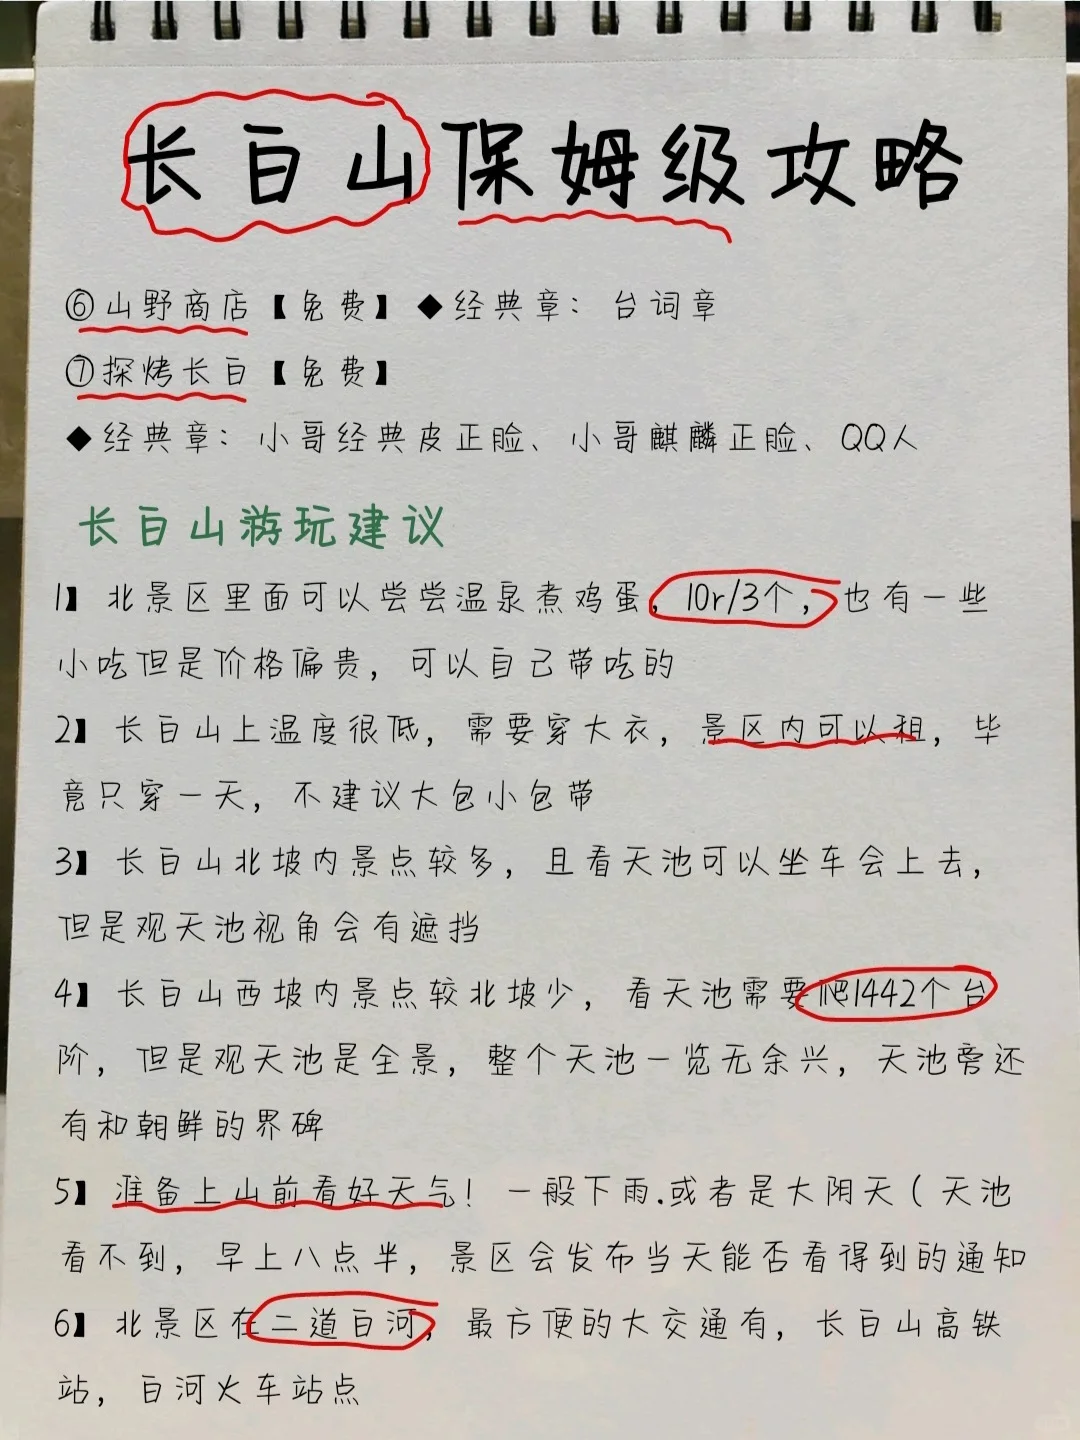 长白山保姆级攻略
⑥山野商店【免费】◆经典章：台词章
⑦探烤长白【免费】
◆经典章：小哥经典皮正脸、小哥麒麟正脸、QQ人
长白山游玩建议
1】北景区里面可以尝尝温泉煮鸡蛋，10r/3个，也有一些
小吃但是价格偏贵，可以自己带吃的
2】长白山上温度很低，需要穿大衣，景区内可以租，毕
竟只穿一天，不建议大包小包带
3】长白山北坡内景点较多，且看天池可以坐车会上去，
但是观天池视角会有遮挡
4】长白山西坡内景点较北坡少，看天池需要爬1442个台
阶，但是观天池是全景，整个天池一览无余兴，天池旁还
有和朝鲜的界碑
5】准备上山前看好天气！一般下雨.或者是大阴天（天池
看不到，早上八点半，景区会发布当天能否看得到的通知
6】北景区在二道白河，最方便的大交通有，长白山高铁
站，白河火车站点